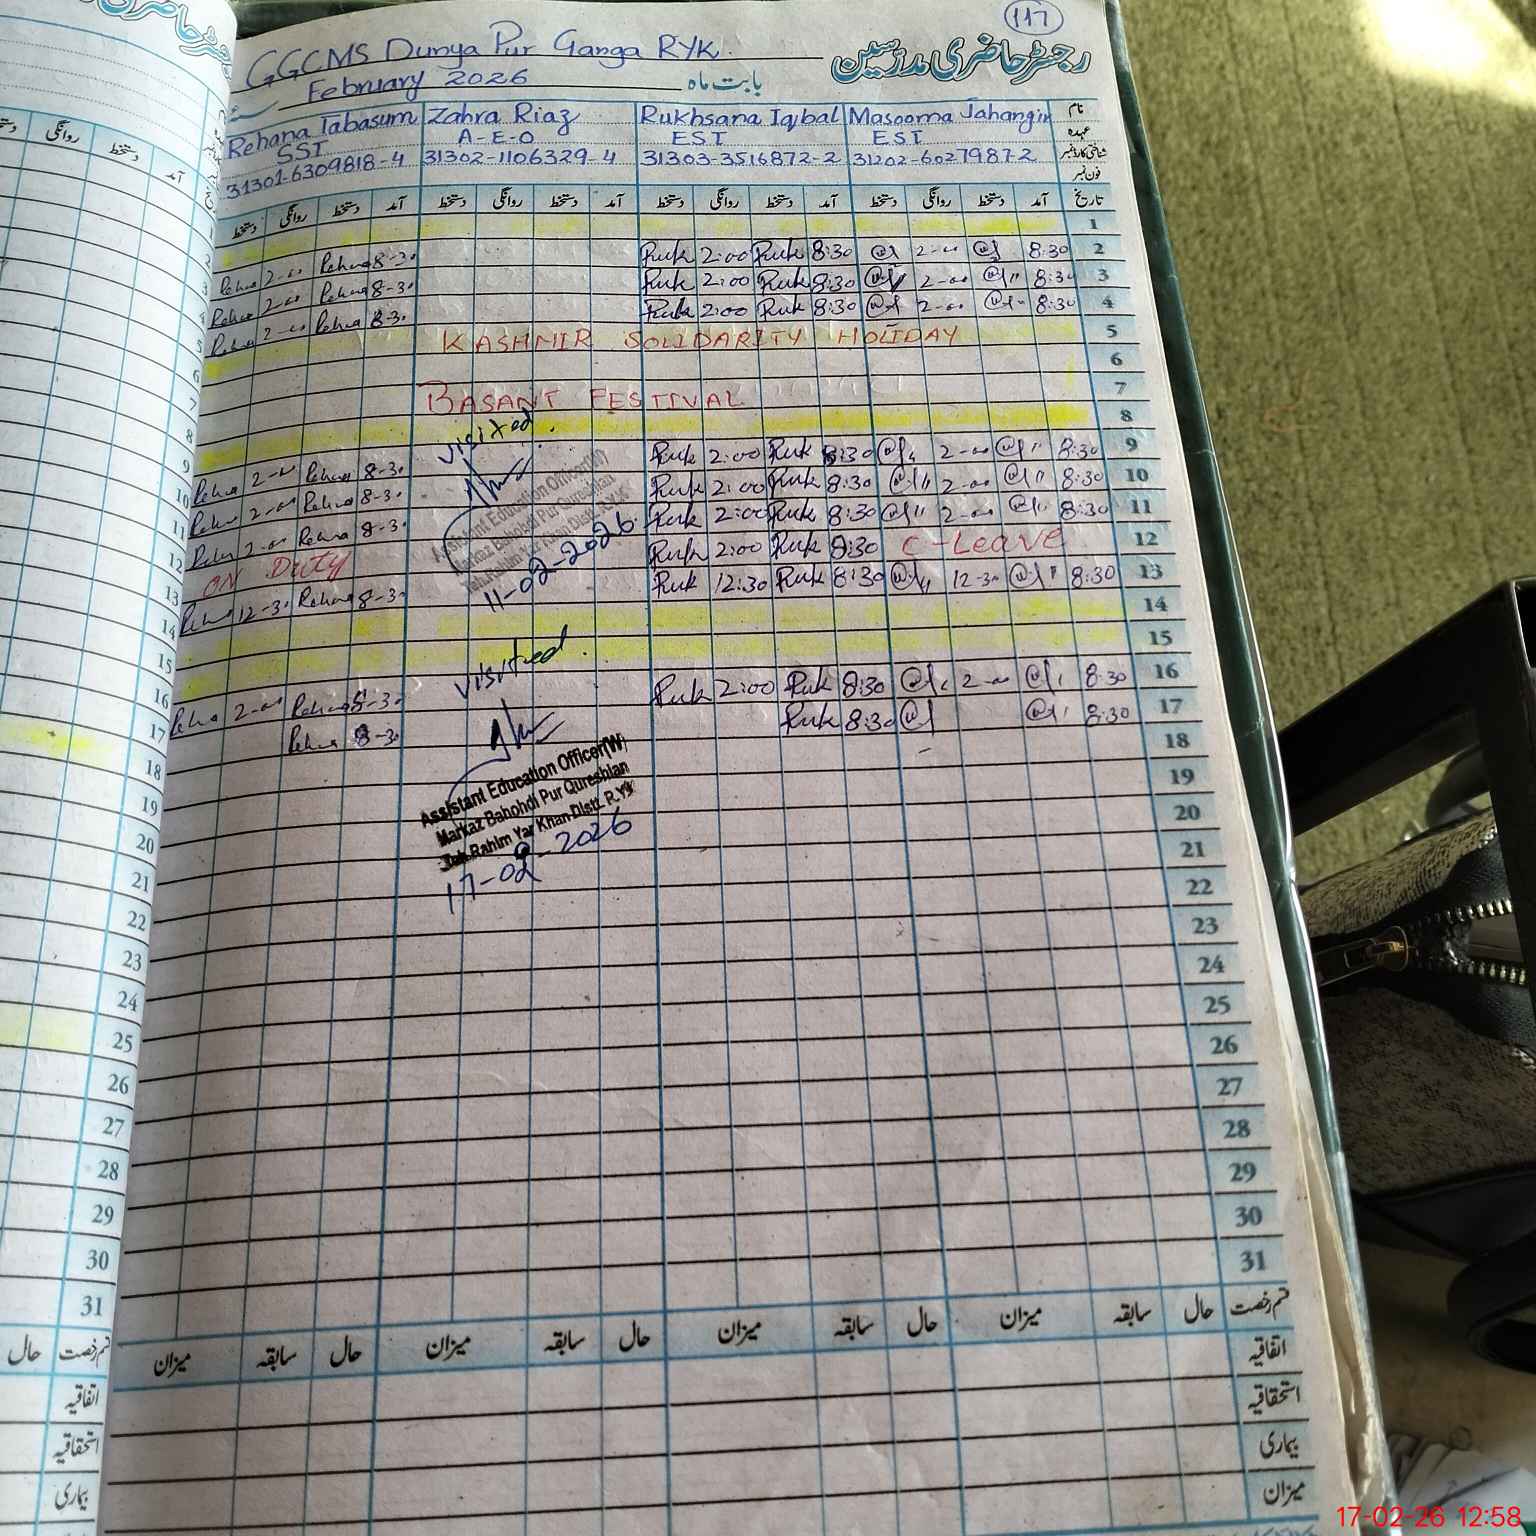 117
GGCMS Dunya Pur Ganga RYK.
رجسٹر حاضری مدرسین
February 2026 بابت ماہ
Rehana Tabasum Zahra Riaz Rukhsana Iqbal Masooma Jahangir نام
SST A-E-O EST EST عہدہ
31301-6309818-4 31302-1106329-4 31303-3516872-2 31202-6027987-2 شناختی کارڈ نمبر
فون نمبر
دستخط روانگی دستخط آمد دستخط روانگی دستخط آمد دستخط روانگی دستخط آمد دستخط روانگی دستخط آمد تاریخ
1
Rehna 2-00 Rehna 8-30 Ruk 2:00 Ruk 8:30 2-00 8:30 2
Rehna 2-00 Rehna 8-30 Ruk 2:00 Ruk 8:30 2-00 8:30 3
Rehna 2-00 Rehna 8-30 Ruk 2:00 Ruk 8:30 2-00 8:30 4
KASHMIR SOLIDARITY HOLIDAY 5
6
BASANT FESTIVAL 7
8
visited.
Rehna 2-00 Rehna 8-30 Ruk 2:00 Ruk 8:30 2-00 8:30 9
Rehna 2-00 Rehna 8-30 Ruk 2:00 Ruk 8:30 2-00 8:30 10
Rehna 2-00 Rehna 8-30 Ruk 2:00 Ruk 8:30 2-00 8:30 11
ON DUTY Ruk 2:00 Ruk 8:30 C-Leave 12
Rehna 12-30 Rehna 8-30 Ruk 12:30 Ruk 8:30 12-30 8:30 13
Assistant Education Officer(W)
Markaz Bahohdi Pur Qureshian
Teh. Rahim Yar Khan Distt. R.Y.K
11-02-2026
14
15
visited.
Rehna 2-00 Rehna 8-30 Ruk 2:00 Ruk 8:30 2-00 8:30 16
Rehna 8-30 Ruk 8:30 8:30 17
Assistant Education Officer(W)
Markaz Bahohdi Pur Qureshian
Teh. Rahim Yar Khan Distt. R.Y.K
17-02-2026
18
19
20
21
22
23
24
25
26
27
28
29
30
31
میزان سابقہ حال میزان سابقہ حال میزان سابقہ حال میزان سابقہ حال قسم رخصت
اتفاقیہ
استحقاقیہ
بیماری
میزان
روانگی دستخط آمد
2
3
4
5
6
7
8
9
10
11
12
13
14
15
16
17
18
19
20
21
22
23
24
25
26
27
28
29
30
31
حال قسم رخصت
اتفاقیہ
استحقاقیہ
بیماری
17-02-26 12:58